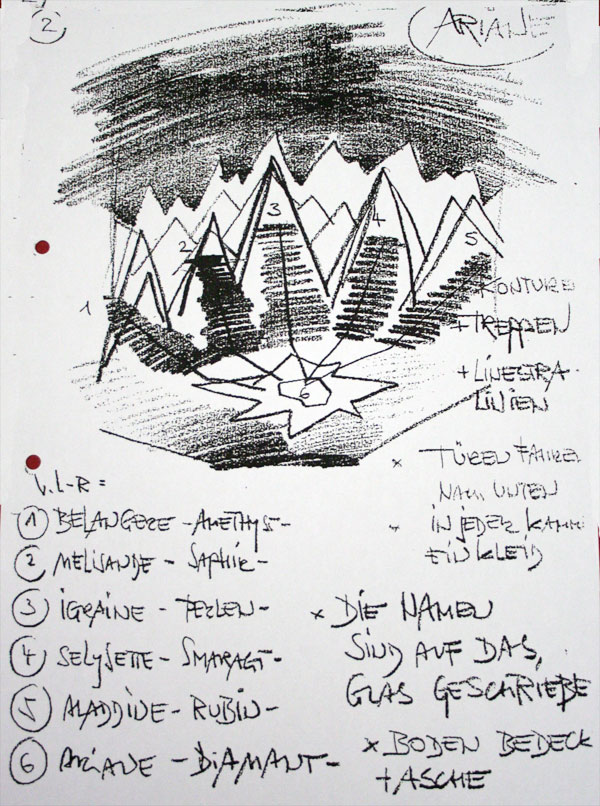 2
ARIANE
3
4
2
5
1
+ KONTURE
+ TREPPEN
+ LINESTRA-
LINIEN
x TÜREN FAHREN
NACH UNTEN
IN JEDER KAMM
EIN KLEID
V.L-R =
1 BELANGERE - AMETHYST -
2 MELISANDE - SAPHIR -
3 IGRAINE - PERLEN -
4 SELYSETTE - SMARAGT -
5 ALADDINE - RUBIN -
6 ARIANE - DIAMANT -
x DIE NAMEN
SIND AUF DAS,
GLAS GESCHRIEBE
x BODEN BEDECK
+ ASCHE